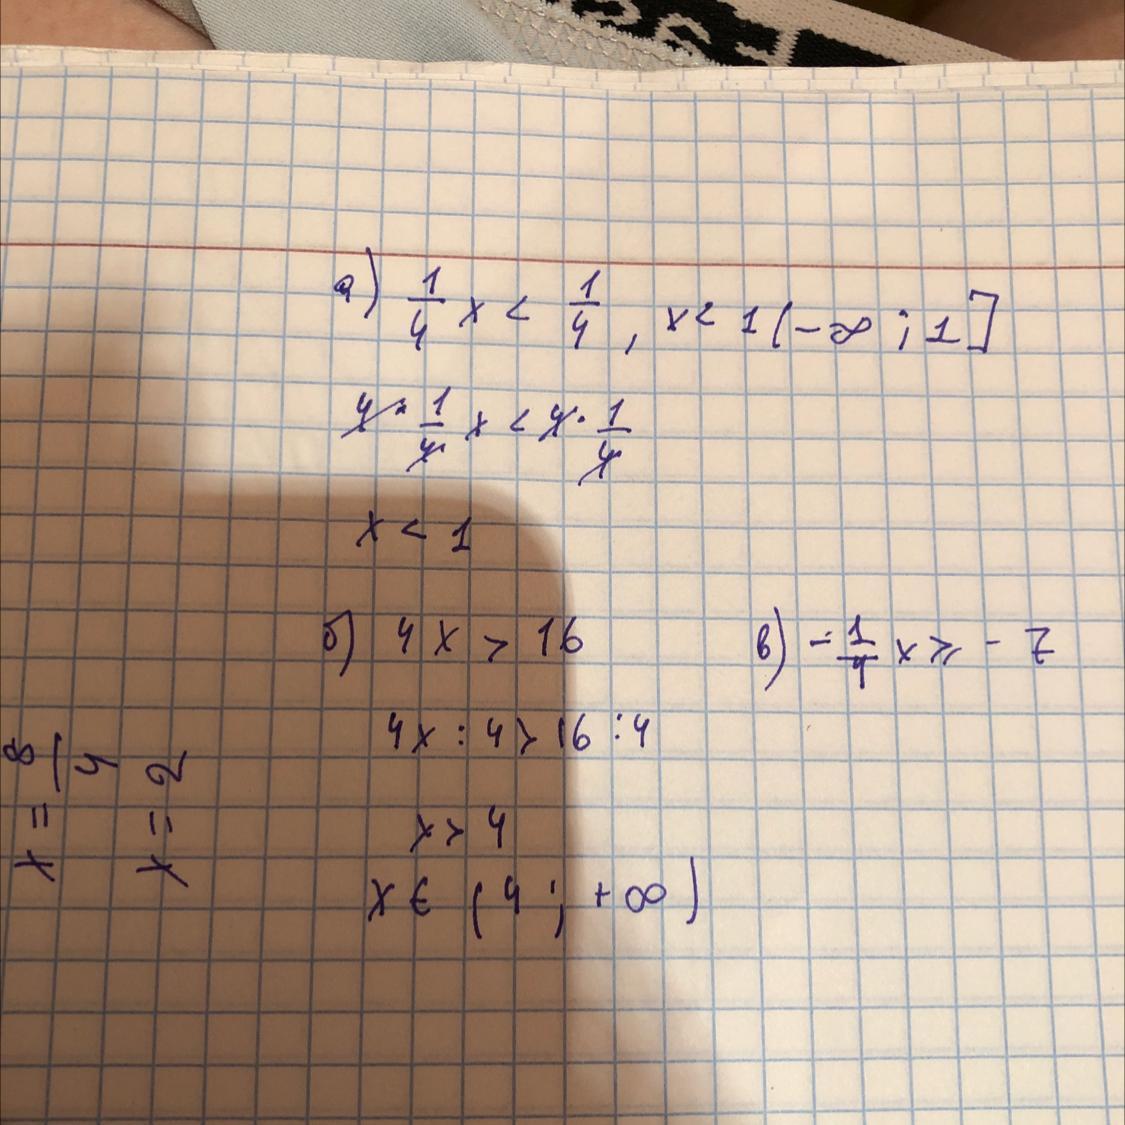 а) 1/4 x < 1/4 , x < 1 (-∞ ; 1]
4 · 1/4 x < 4 · 1/4
x < 1
б) 4x > 16
4x : 4 > 16 : 4
x > 4
x ∈ (4 ; +∞)
в) - 1/4 x ⩾ - 7
x = 8/4
x = 2